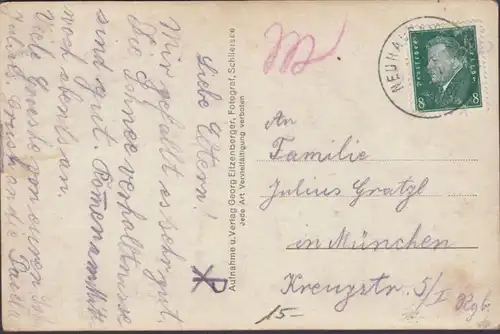 Liebe Eltern!
Mir gefällt es sehr gut.
Die Schneeverhältnisse
sind gut. Komen am Mitt
woch abens an.
Viele Grüsse von
Aufnahme u. Verlag Georg Eitzenberger, Fotograf, Schliersee
Jede Art Vervielfältigung verboten
NEUHAU
8 8
An
Familie
Julius Gratzl
in München
Kreuzstr. 5/I
Rgb.
15-